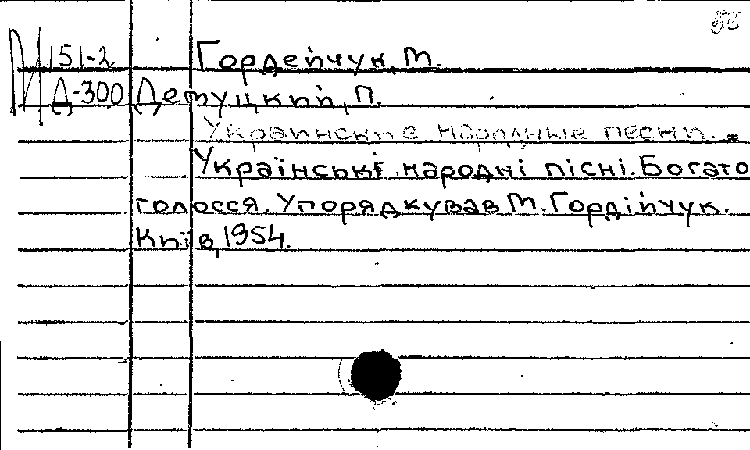 М 151-2 Гордейчук, М.
Д-300 Демуцкий, П.
Украинские народные песни.
Українські народні пісні. Богато
голосся. Упорядкував М. Гордійчук.
Київ, 1954.